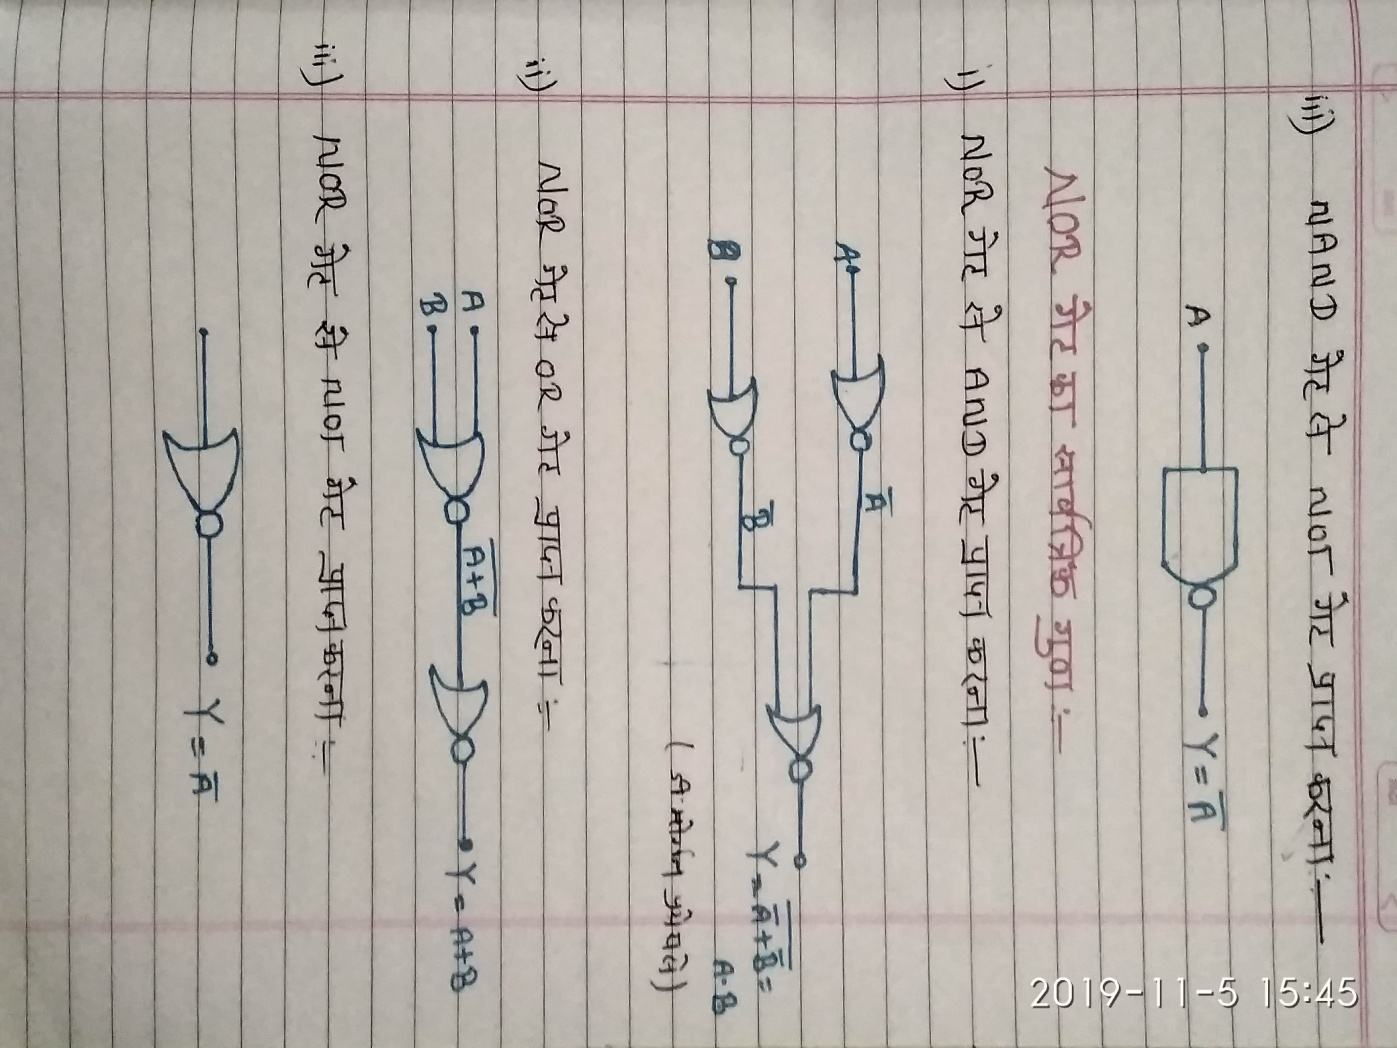 iii) NAND गेट से NOT गेट प्राप्त करना:—
A
Y = A̅
NOR गेट का सार्वत्रिक गुण :—
i) NOR गेट से AND गेट प्राप्त करना:—
A
A̅
B
B̅
Y = \overline{A̅ + B̅} =
A·B
(डी-मोर्गन प्रमेय से)
ii) NOR गेट से OR गेट प्राप्त करना :—
A
B
\overline{A+B}
Y = A+B
iii) NOR गेट से NOT गेट प्राप्त करना :—
Y = A̅
2019-11-5 15:45